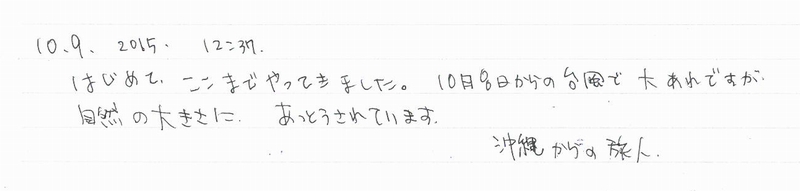 10.9. 2015. 12:37.
はじめて、ここまでやってきました。10月8日からの台風で大あれですが
自然の大きさに、あっとうされています。
沖縄からの旅人.